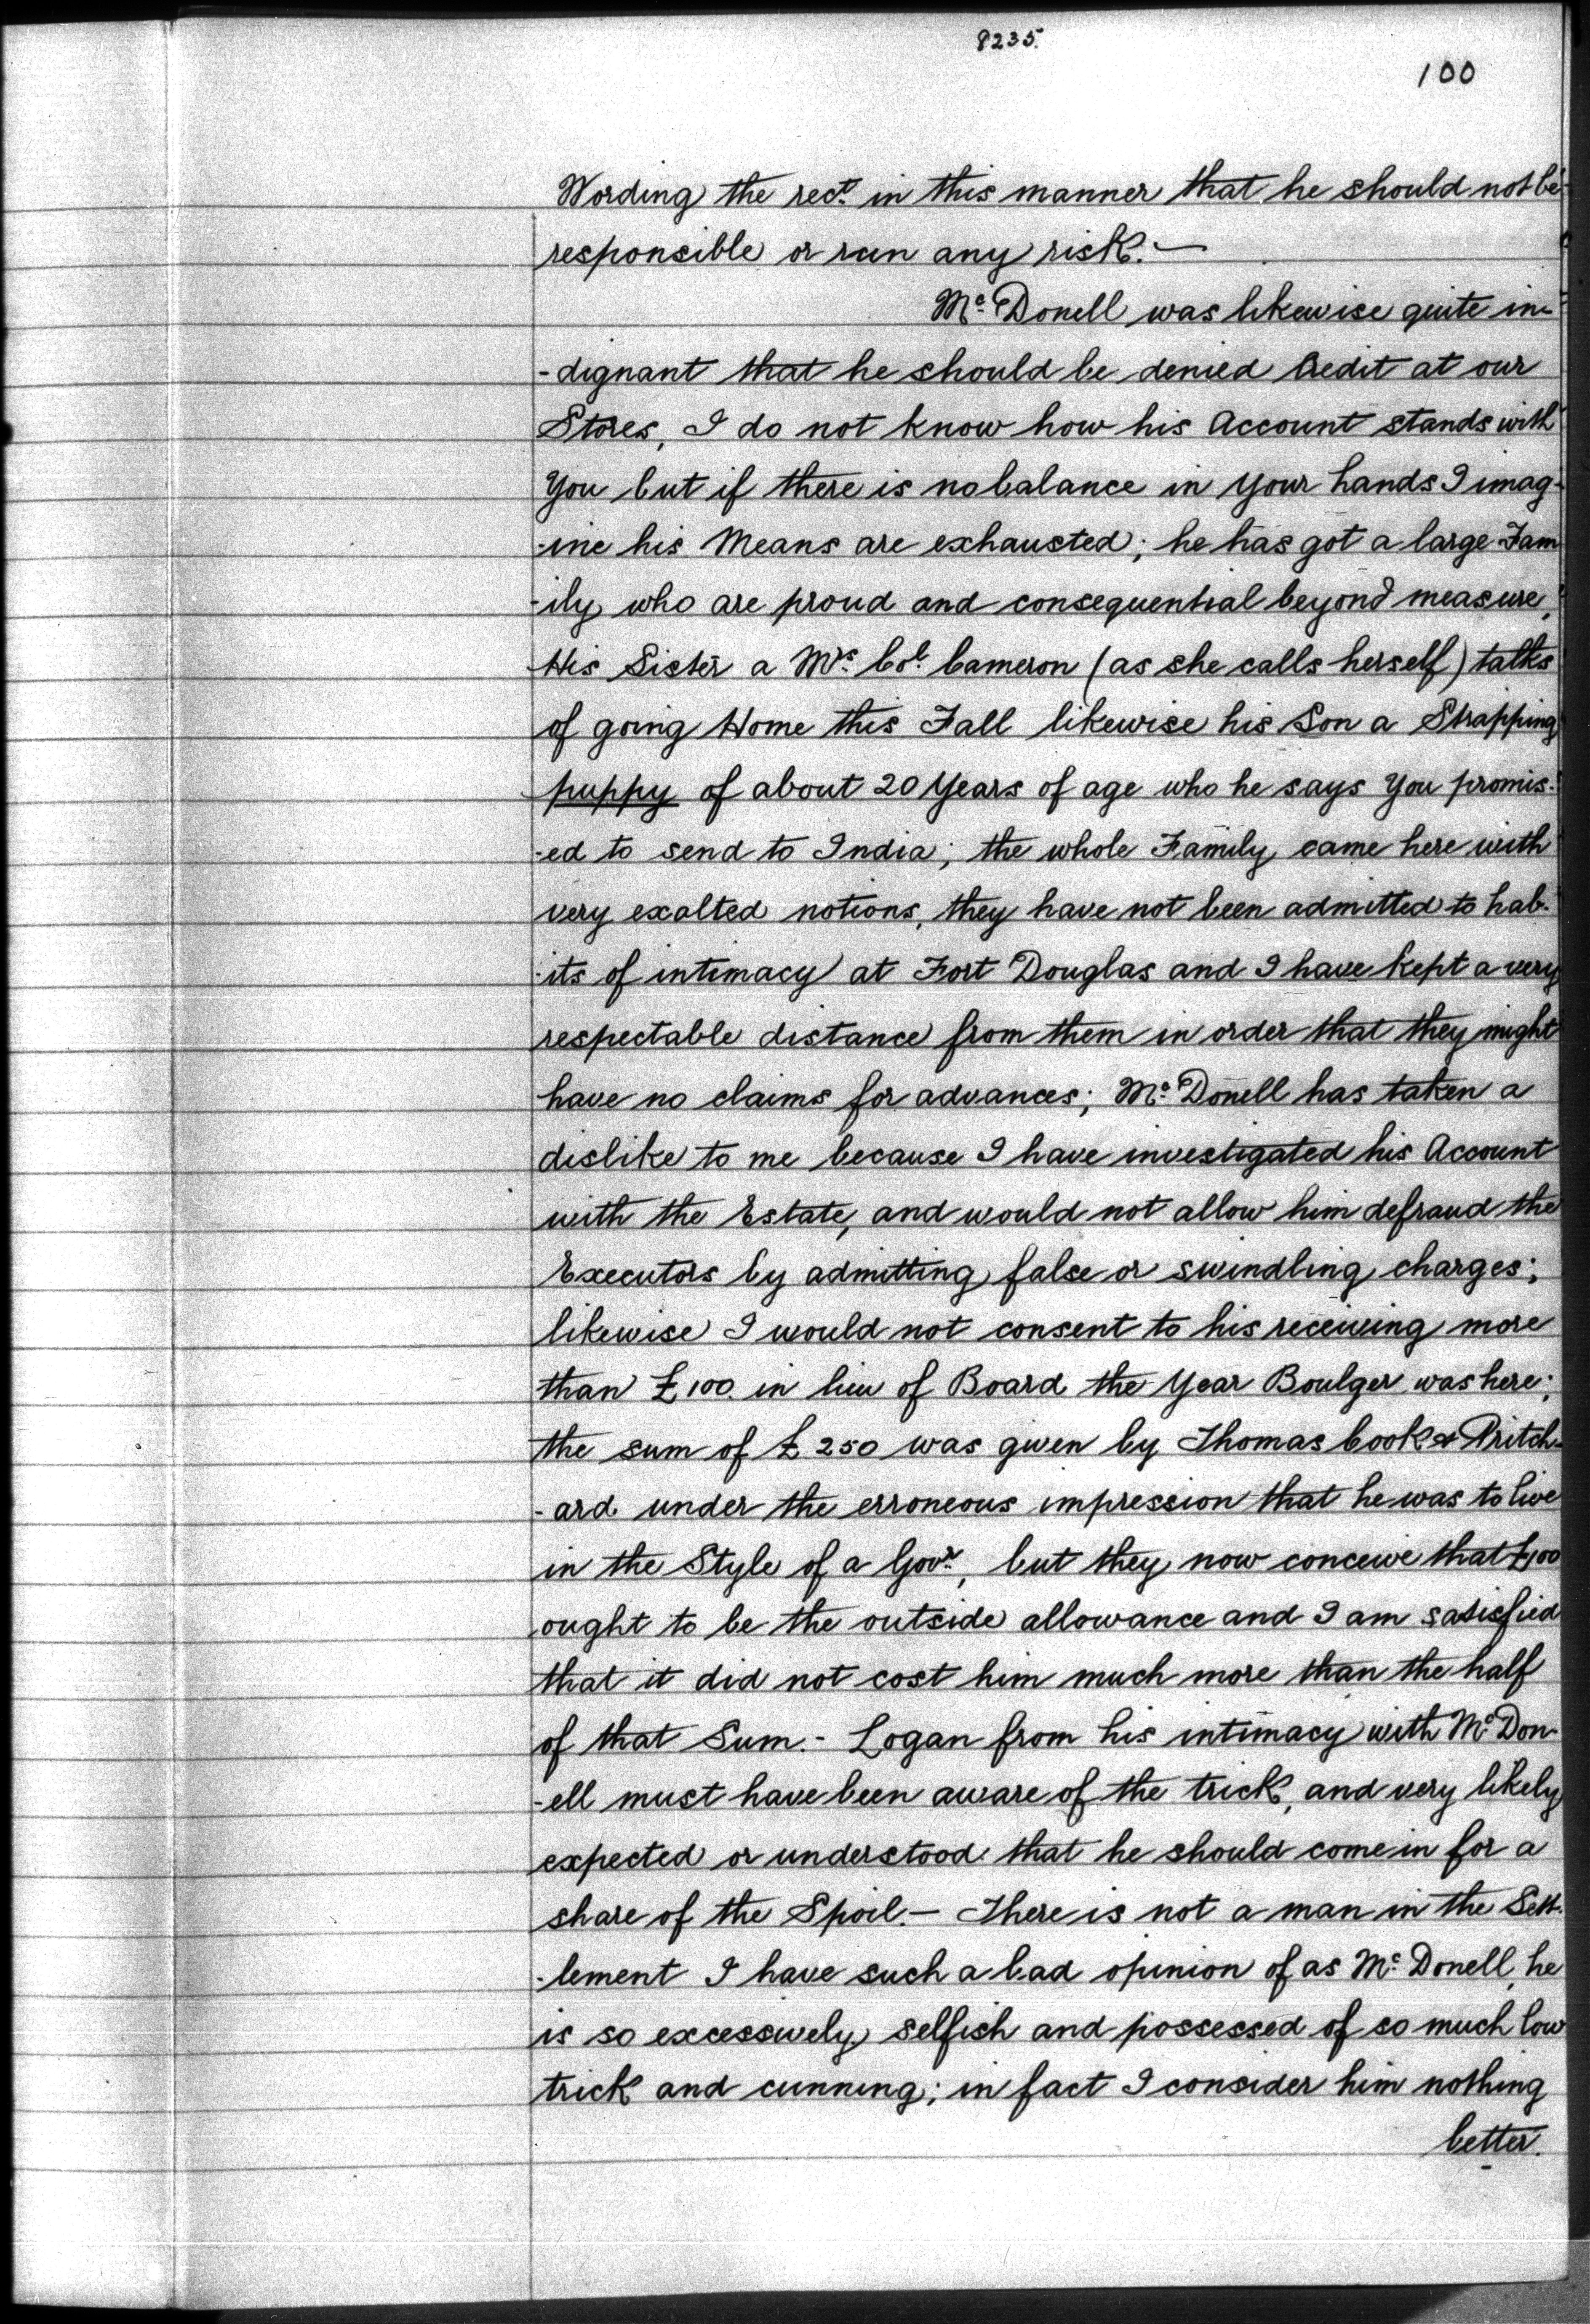 8235.
100
Wording the rect. in this manner that he should not be
responsible or run any risk.—
Mc. Donell was likewise quite in-
-dignant that he should be denied Credit at our
Stores, I do not know how his Account stands with
You but if there is no balance in your hands I imag-
-ine his Means are exhausted; he has got a large Fam
-ily who are proud and consequential beyond measure,
His Sister a Mrs. Col. Cameron (as she calls herself) talks
of going Home this Fall likewise his Son a Strapping
puppy of about 20 Years of age who he says You promis-
-ed to send to India; the whole Family came here with
very exalted notions, they have not been admitted to hab-
-its of intimacy at Fort Douglas and I have kept a very
respectable distance from them in order that they might
have no claims for advances; Mc. Donell has taken a
dislike to me because I have investigated his Account
with the Estate, and would not allow him defraud the
Executors by admitting false or swindling charges;
likewise I would not consent to his receiving more
than £100. in lieu of Board the Year Boulger was here;
the sum of £250 was given by Thomas Cook & Pritch-
-ard under the erroneous impression that he was to live
in the Style of a Govr., but they now conceive that £100
ought to be the outside allowance and I am satisfied
that it did not cost him much more than the half
of that Sum.- Logan from his intimacy with Mc. Don-
-ell must have been aware of the trick, and very likely
expected or understood that he should come in for a
share of the Spoil.— There is not a man in the Sett-
-lement I have such a bad opinion of as Mc. Donell, he
is so excessively selfish and possessed of so much low
trick and cunning; in fact I consider him nothing
better.